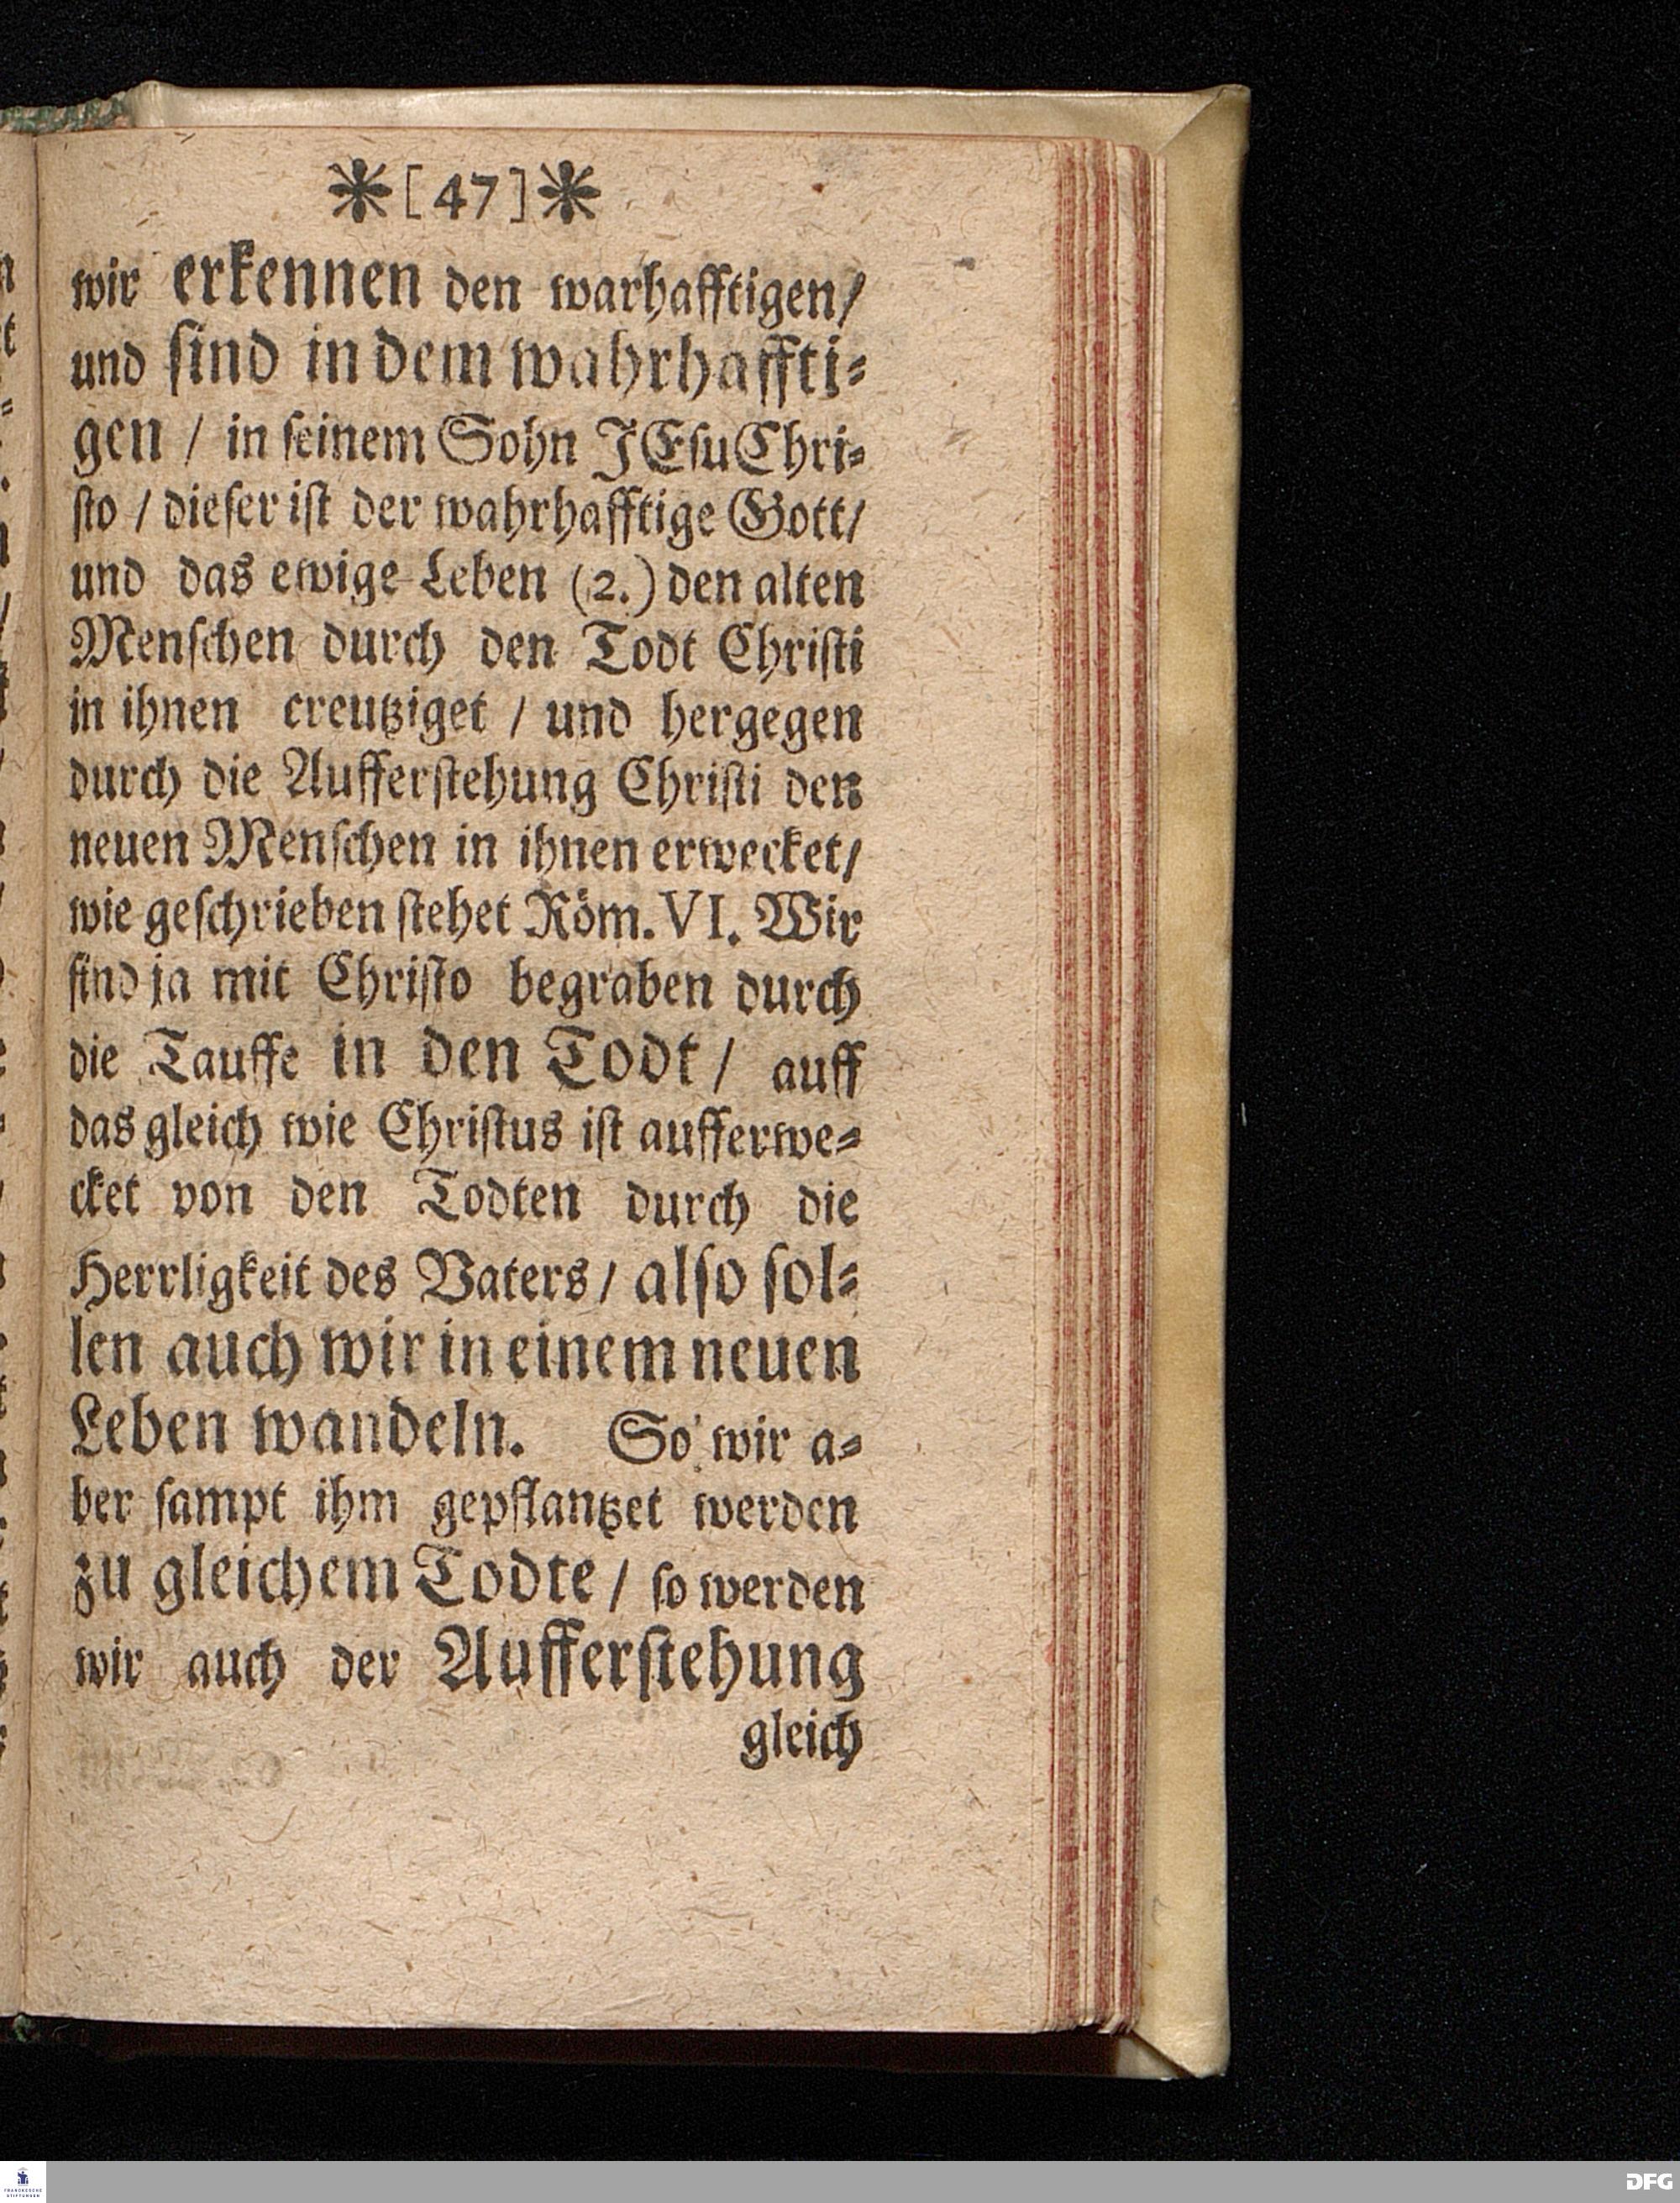 *[47]*
wir erkennen den warhafftigen/
und sind in dem wahrhaffti⸗
gen / in ſeinem Sohn JEſu Chri⸗
ſto / dieſer iſt der wahrhafftige Gott/
und das ewige Leben (2.) den alten
Menſchen durch den Todt Chriſti
in ihnen creutziget / und hergegen
durch die Aufferſtehung Chriſti den
neuen Menſchen in ihnen erwecket/
wie geſchrieben ſtehet Röm. VI. Wir
ſind ja mit Chriſto begraben durch
die Tauffe in den Todt / auff
das gleich wie Chriſtus iſt aufferwe⸗
cket von den Todten durch die
Herrligkeit des Vaters / alſo ſol⸗
len auch wir in einem neuen
Leben wandeln. So wir a⸗
ber ſampt ihm gepflantzet werden
zu gleichem Todte / ſo werden
wir auch der Aufferſtehung
gleich
FRANCKESCHE
STIFTUNGEN
DFG